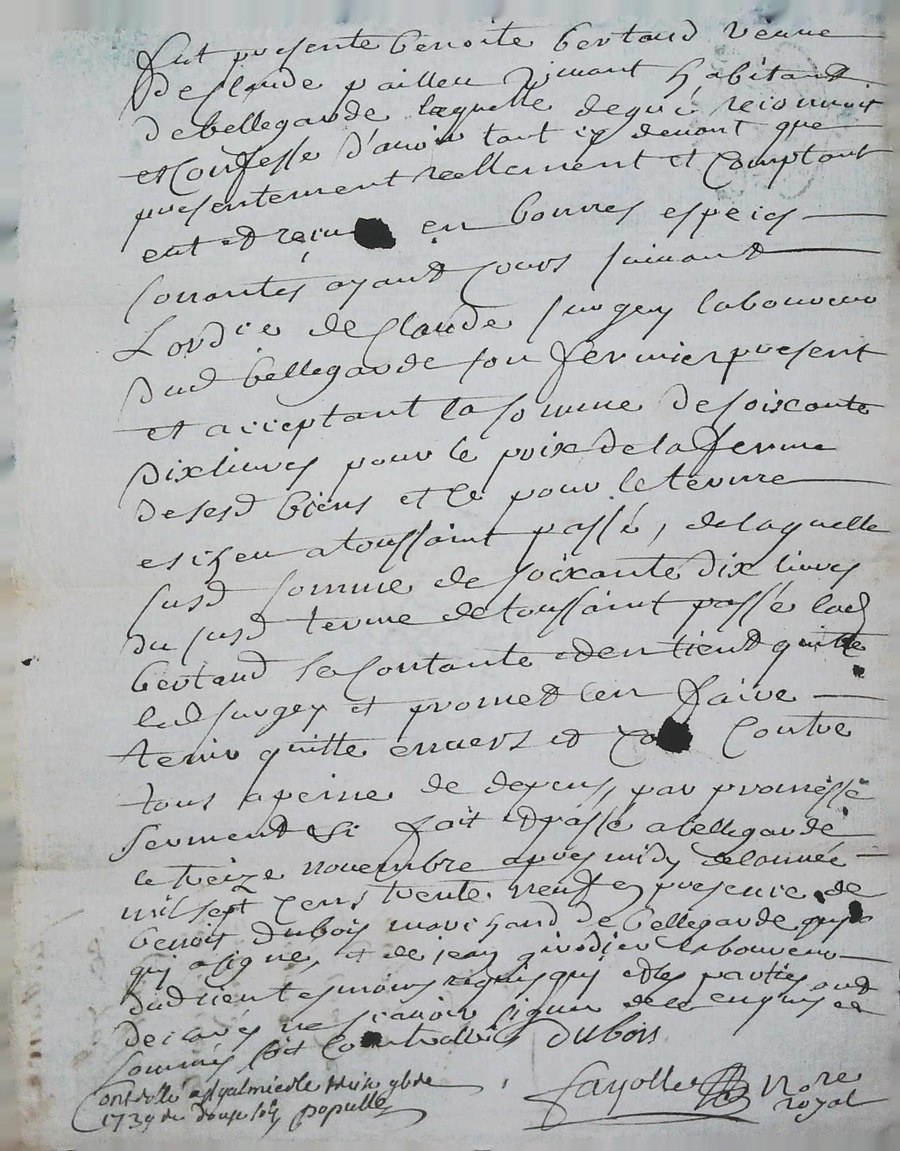 fut presente benoite bertaud veuve
de Claude pailleu vivant habitant
de bellegarde laquelle de gré reconnoit
et Confesse d'avoir tant cy devant que
presentement reellement et Comptant
eut et reçu en bonnes especes
Courantes ayant Cours suivant
Lordre de Claude surgey laboureur
dud bellegarde son fermier present
et acceptant la somme de soixante
dix livres pour le prix de la ferme
de sesd biens et Ce pour le terme
escheu a toussaint passé, de laquelle
susd somme de soixante dix livres
du susd terme de toussaint passé lad
bertaud se Contante et en tient quitte
led surgey et promet len faire
tenir quitte envers et Contre
tous a peine de depens, par promesse
serment &c fait et passé a bellegarde
le treize novembre apres midy de lannée
mil sept Cens trente neuf en presence de
benoit Dubois marchand de bellegarde
qui a signé, et de jean girodier laboureur
dud lieu tesmoins requis qui et les parties ont
declarés ne scavoir signer de ce enquis et
sommés soit Controllé Dubois
Controllé a St galmier le treize 9bre
1739 re douze sols populle
fayolle Nore
royal